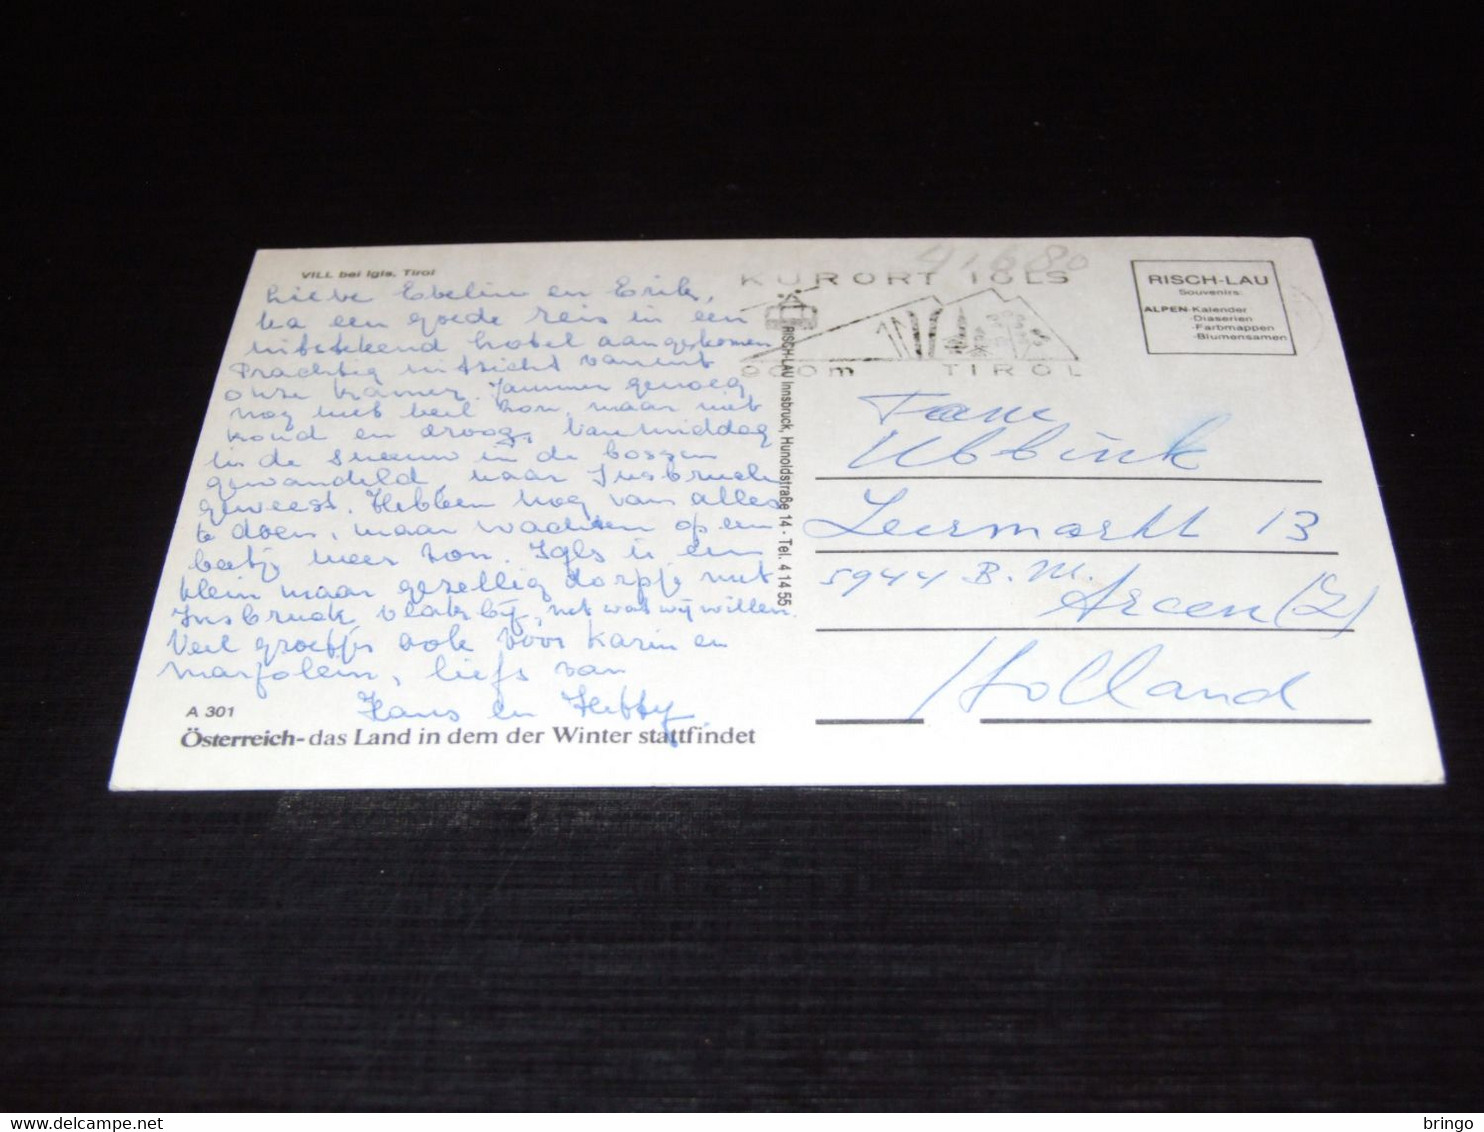 VILL bei Igls, Tirol
Lieve Evelin en Erik,
Na een goede reis in een
uitstekend hotel aangekomen
Prachtig uitzicht vanuit
onze kamer. Jammer genoeg
nog niet veel zon, maar wel
koud en droog. Vanmiddag
in de sneeuw in de bossen
gewandeld, naar Innsbruck
geweest. Hebben nog van alles
te doen, maar wachten op een
beetje meer zon. Igls is een
klein maar gezellig dorpje met
Insbruck vlakbij, net wat wij willen.
Veel groetjes ook voor Karin en
Marjolein, liefs van
Hans en Hetty
A 301
Österreich-das Land in dem der Winter stattfindet
RISCH-LAU Innsbruck, Hunoldstraße 14 - Tel. 4 14 55
KURORT IGLS
900m TIROL
RISCH-LAU
Souvenirs:
ALPEN-Kalender
-Diaserien
-Farbmappen
-Blumensamen
Fam
Ubbink
Leermarkt 13
5944 B.M.
Arcen (L)
Holland
bringo